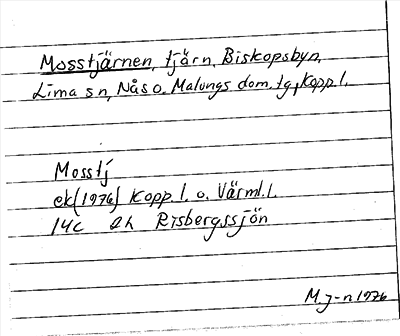 Mosstjärnen, tjärn, Biskopsbyn,
Lima sn, Nås o. Malungs dom.tg, Kopp. l.
Mosstj
ek(1976) Kopp. l. o. Värml. l.
14c 2h Risbergssjön
M j-n 1976